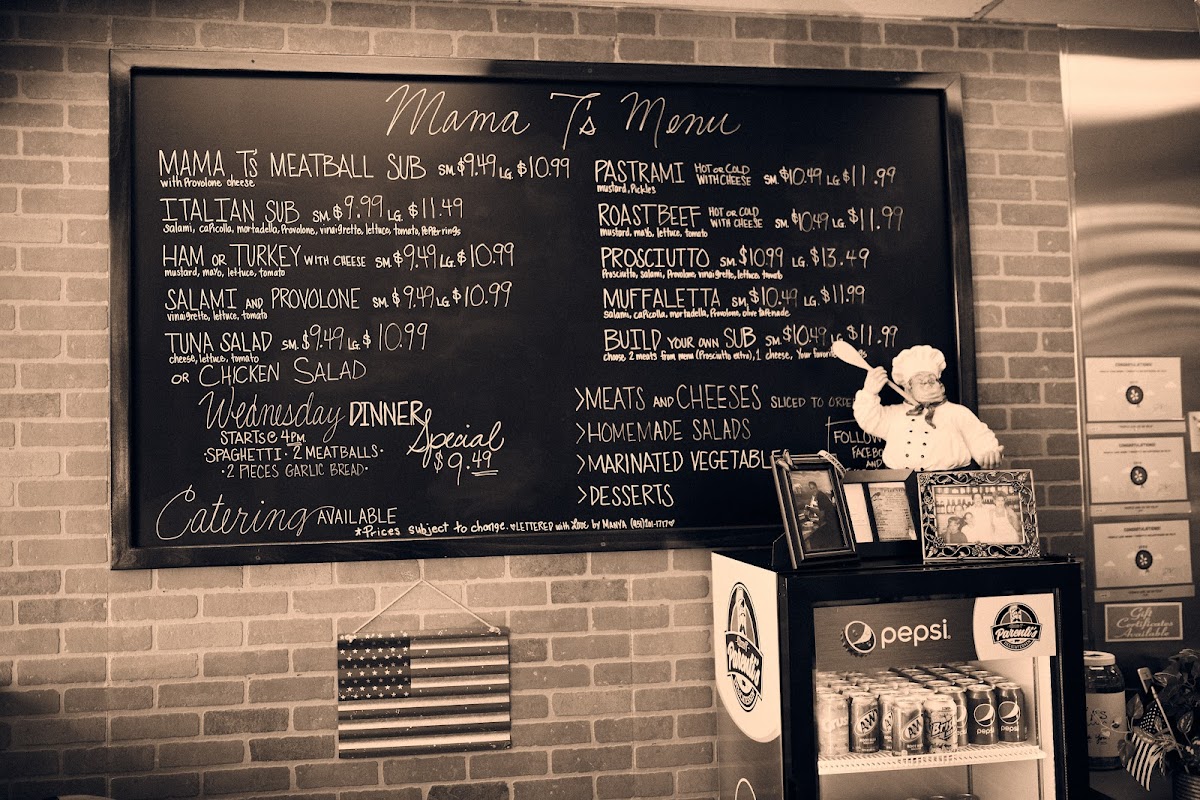 Mama T's Menu
MAMA T'S MEATBALL SUB SM. $9.49 LG. $10.99
with Provolone cheese
ITALIAN SUB SM. $9.99 LG. $11.49
salami, capicolla, mortadella, Provolone, vinaigrette, lettuce, tomato, Pepper rings
HAM OR TURKEY WITH CHEESE SM. $9.49 LG. $10.99
mustard, mayo, lettuce, tomato
SALAMI AND PROVOLONE SM. $9.49 LG. $10.99
vinaigrette, lettuce, tomato
TUNA SALAD SM. $9.49 LG. $10.99
cheese, lettuce, tomato
OR CHICKEN SALAD
Wednesday DINNER
Special
STARTS @ 4PM
$9.49
·SPAGHETTI · 2 MEATBALLS·
·2 PIECES GARLIC BREAD·
Catering AVAILABLE
*Prices subject to change. ♥LETTERED with LOVE by MANYA (951)201-1717♥
PASTRAMI HOT OR COLD WITH CHEESE SM. $10.49 LG. $11.99
mustard, Pickles
ROAST BEEF HOT OR COLD WITH CHEESE SM. $10.49 LG. $11.99
mustard, mayo, lettuce, tomato
PROSCIUTTO SM. $10.99 LG. $13.49
Prosciutto, salami, Provolone, vinaigrette, lettuce, tomato
MUFFALETTA SM. $10.49 LG. $11.99
salami, capicolla, mortadella, Provolone, olive tapenade
BUILD YOUR OWN SUB SM. $10.49 LG. $11.99
choose 2 meats from menu (Prosciutto extra), 1 cheese, Your favorite
>MEATS AND CHEESES SLICED TO ORDER
>HOMEMADE SALADS
>MARINATED VEGETABLE
>DESSERTS
FOLLOW
FACEBO
AND
CONGRATULATIONS
CONGRATULATIONS
CONGRATULATIONS
Gift
Certificates
Available
pepsi
Parenti's
Parenti's
Crush
A&W
A&W
pepsi
pepsi